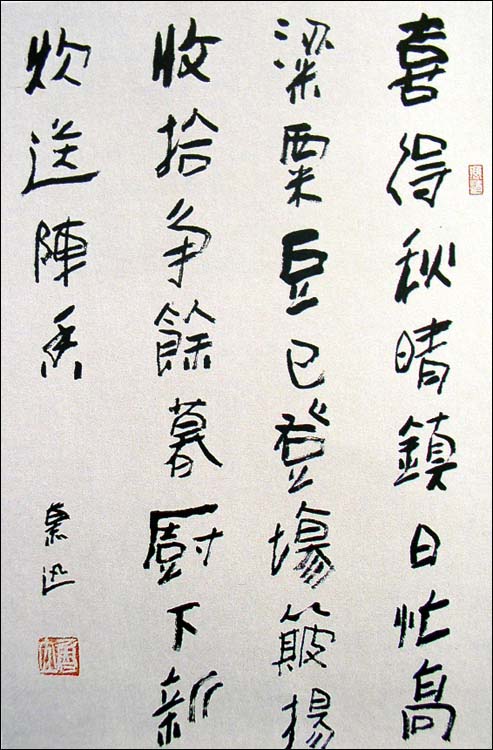 喜得秋晴鎮日忙高
粱粟豆已登場簸揚
收拾争餘暮廚下新
炊送陣香